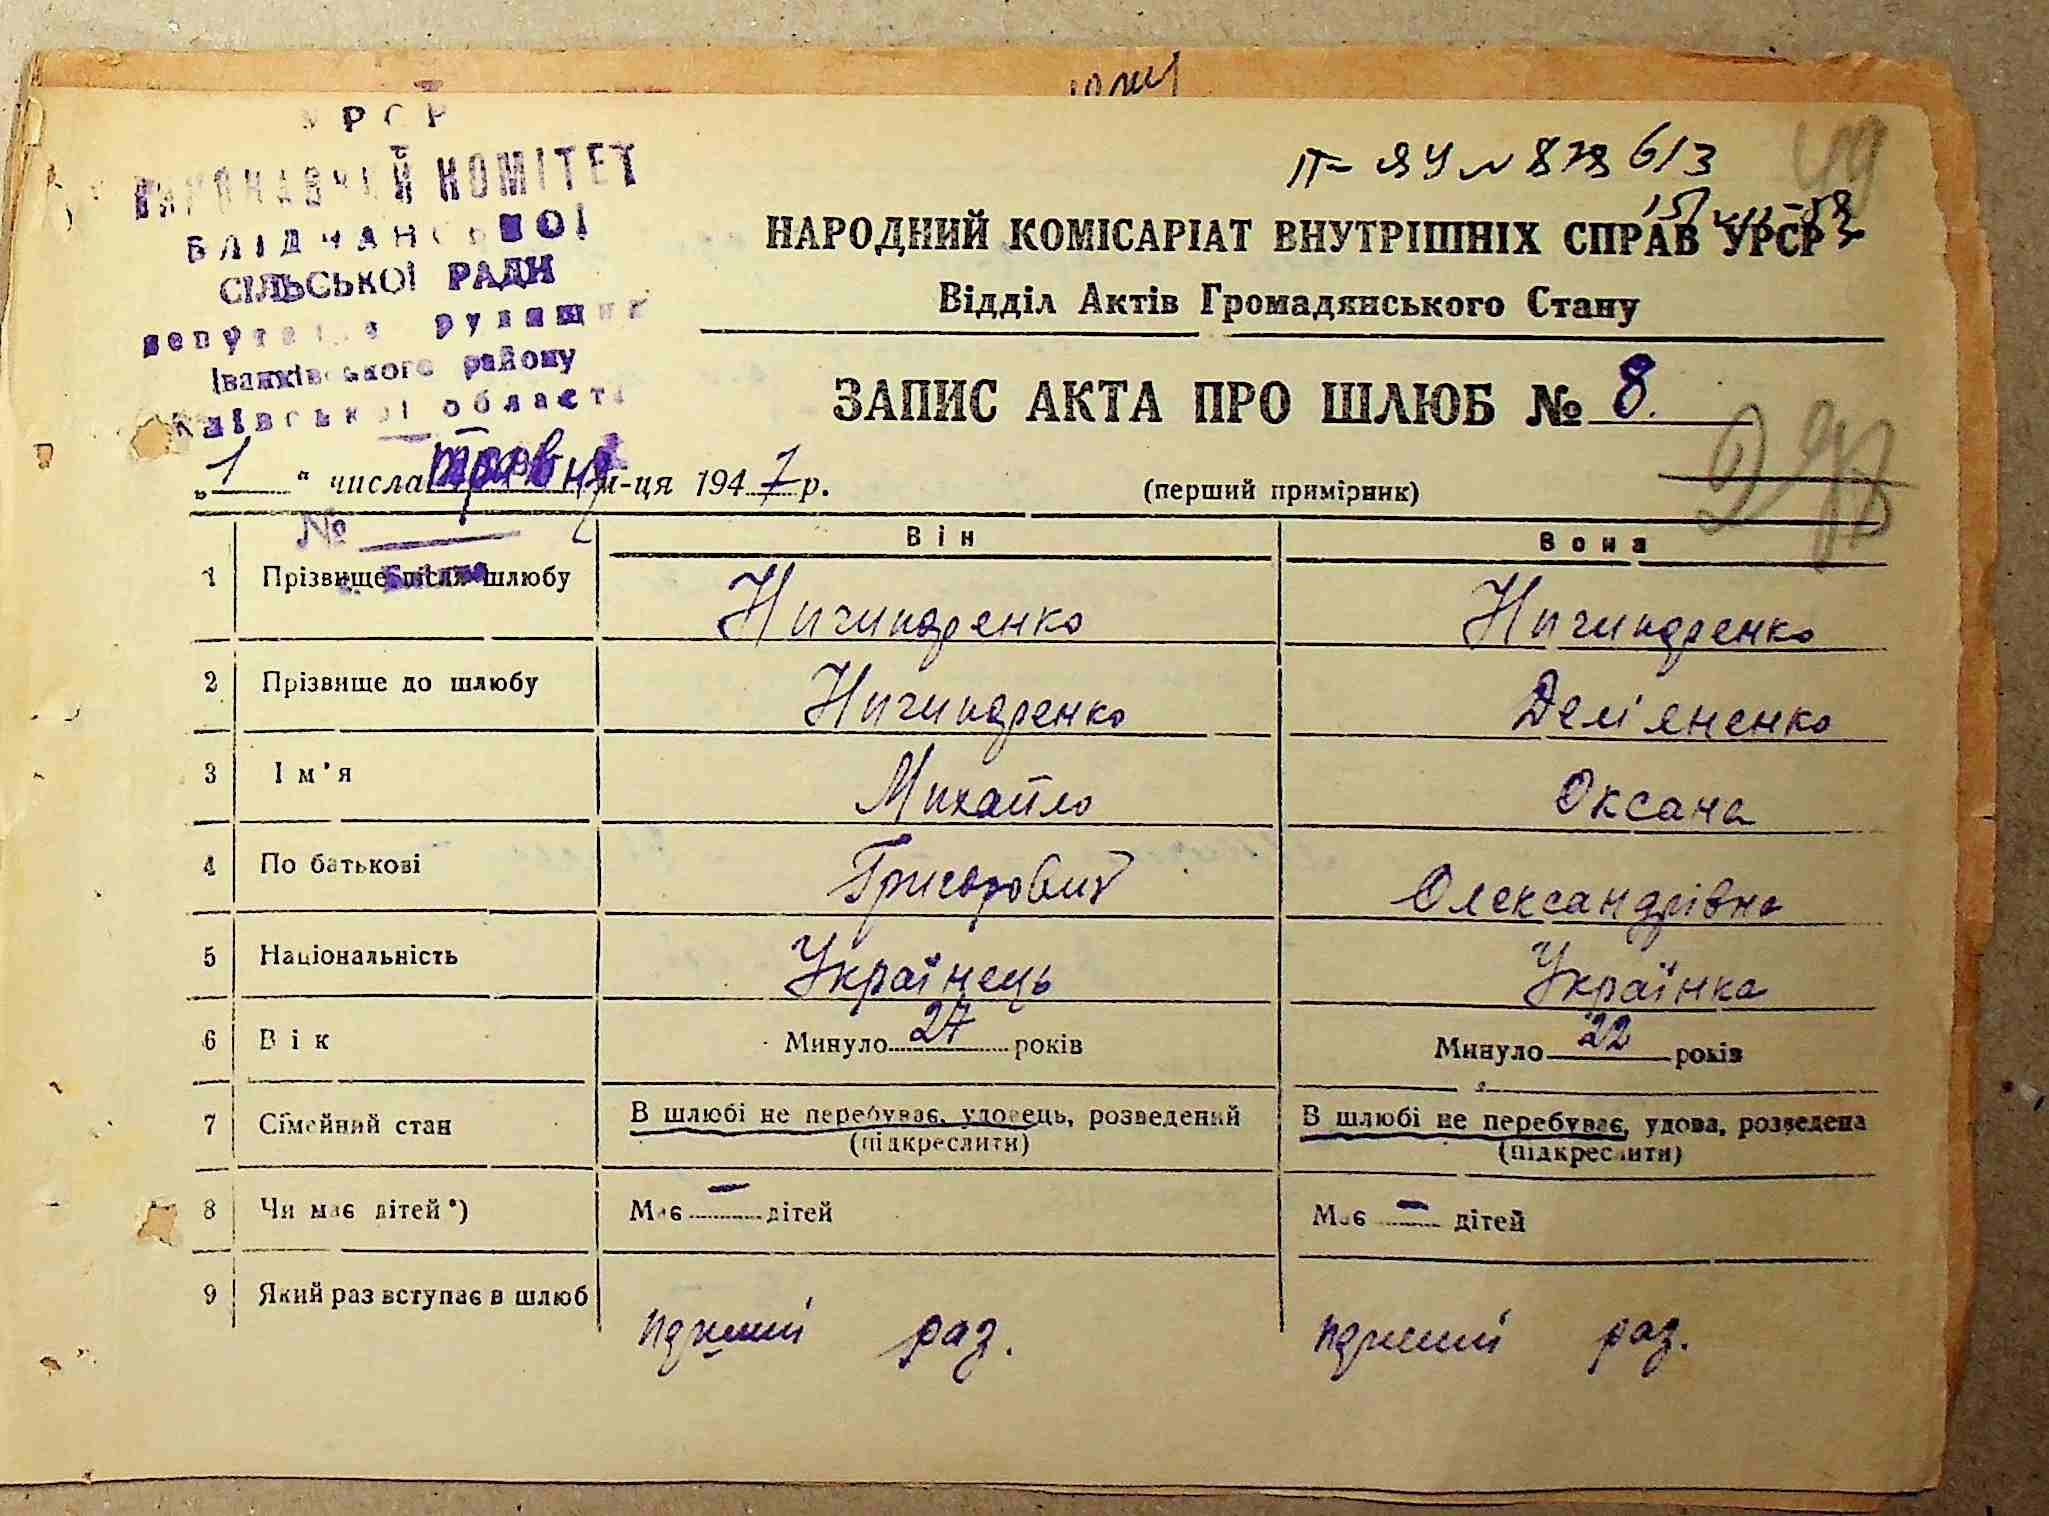 УРСР
ВИКОНАВЧИЙ КОМІТЕТ
БЛІДЧАНСЬКОЇ
СІЛЬСЬКОЇ РАДИ
депутатів трудящих
Іванківського району
Київської області
№
П-ЯЧ № 878613
49
НАРОДНИЙ КОМІСАРІАТ ВНУТРІШНІХ СПРАВ УРСР
Відділ Актів Громадянського Стану
ЗАПИС АКТА ПРО ШЛЮБ № 8.
„1“ числа травня м-ця 1947 р. (перший примірник)
Він Вона
1 Прізвище після шлюбу Ничипоренко Ничипоренко
2 Прізвище до шлюбу Ничипоренко Дем'яненко
3 Ім'я Михайло Оксана
4 По батькові Григорович Олександрівна
5 Національність Українець Українка
6 Вік Минуло 27 років Минуло 22 років
7 Сімейний стан В шлюбі не перебуває, удовець, розведений В шлюбі не перебуває, удова, розведена
(підкреслити) (підкреслити)
8 Чи має дітей*) Має – дітей Має – дітей
9 Який раз вступає в шлюб перший раз. перший раз.